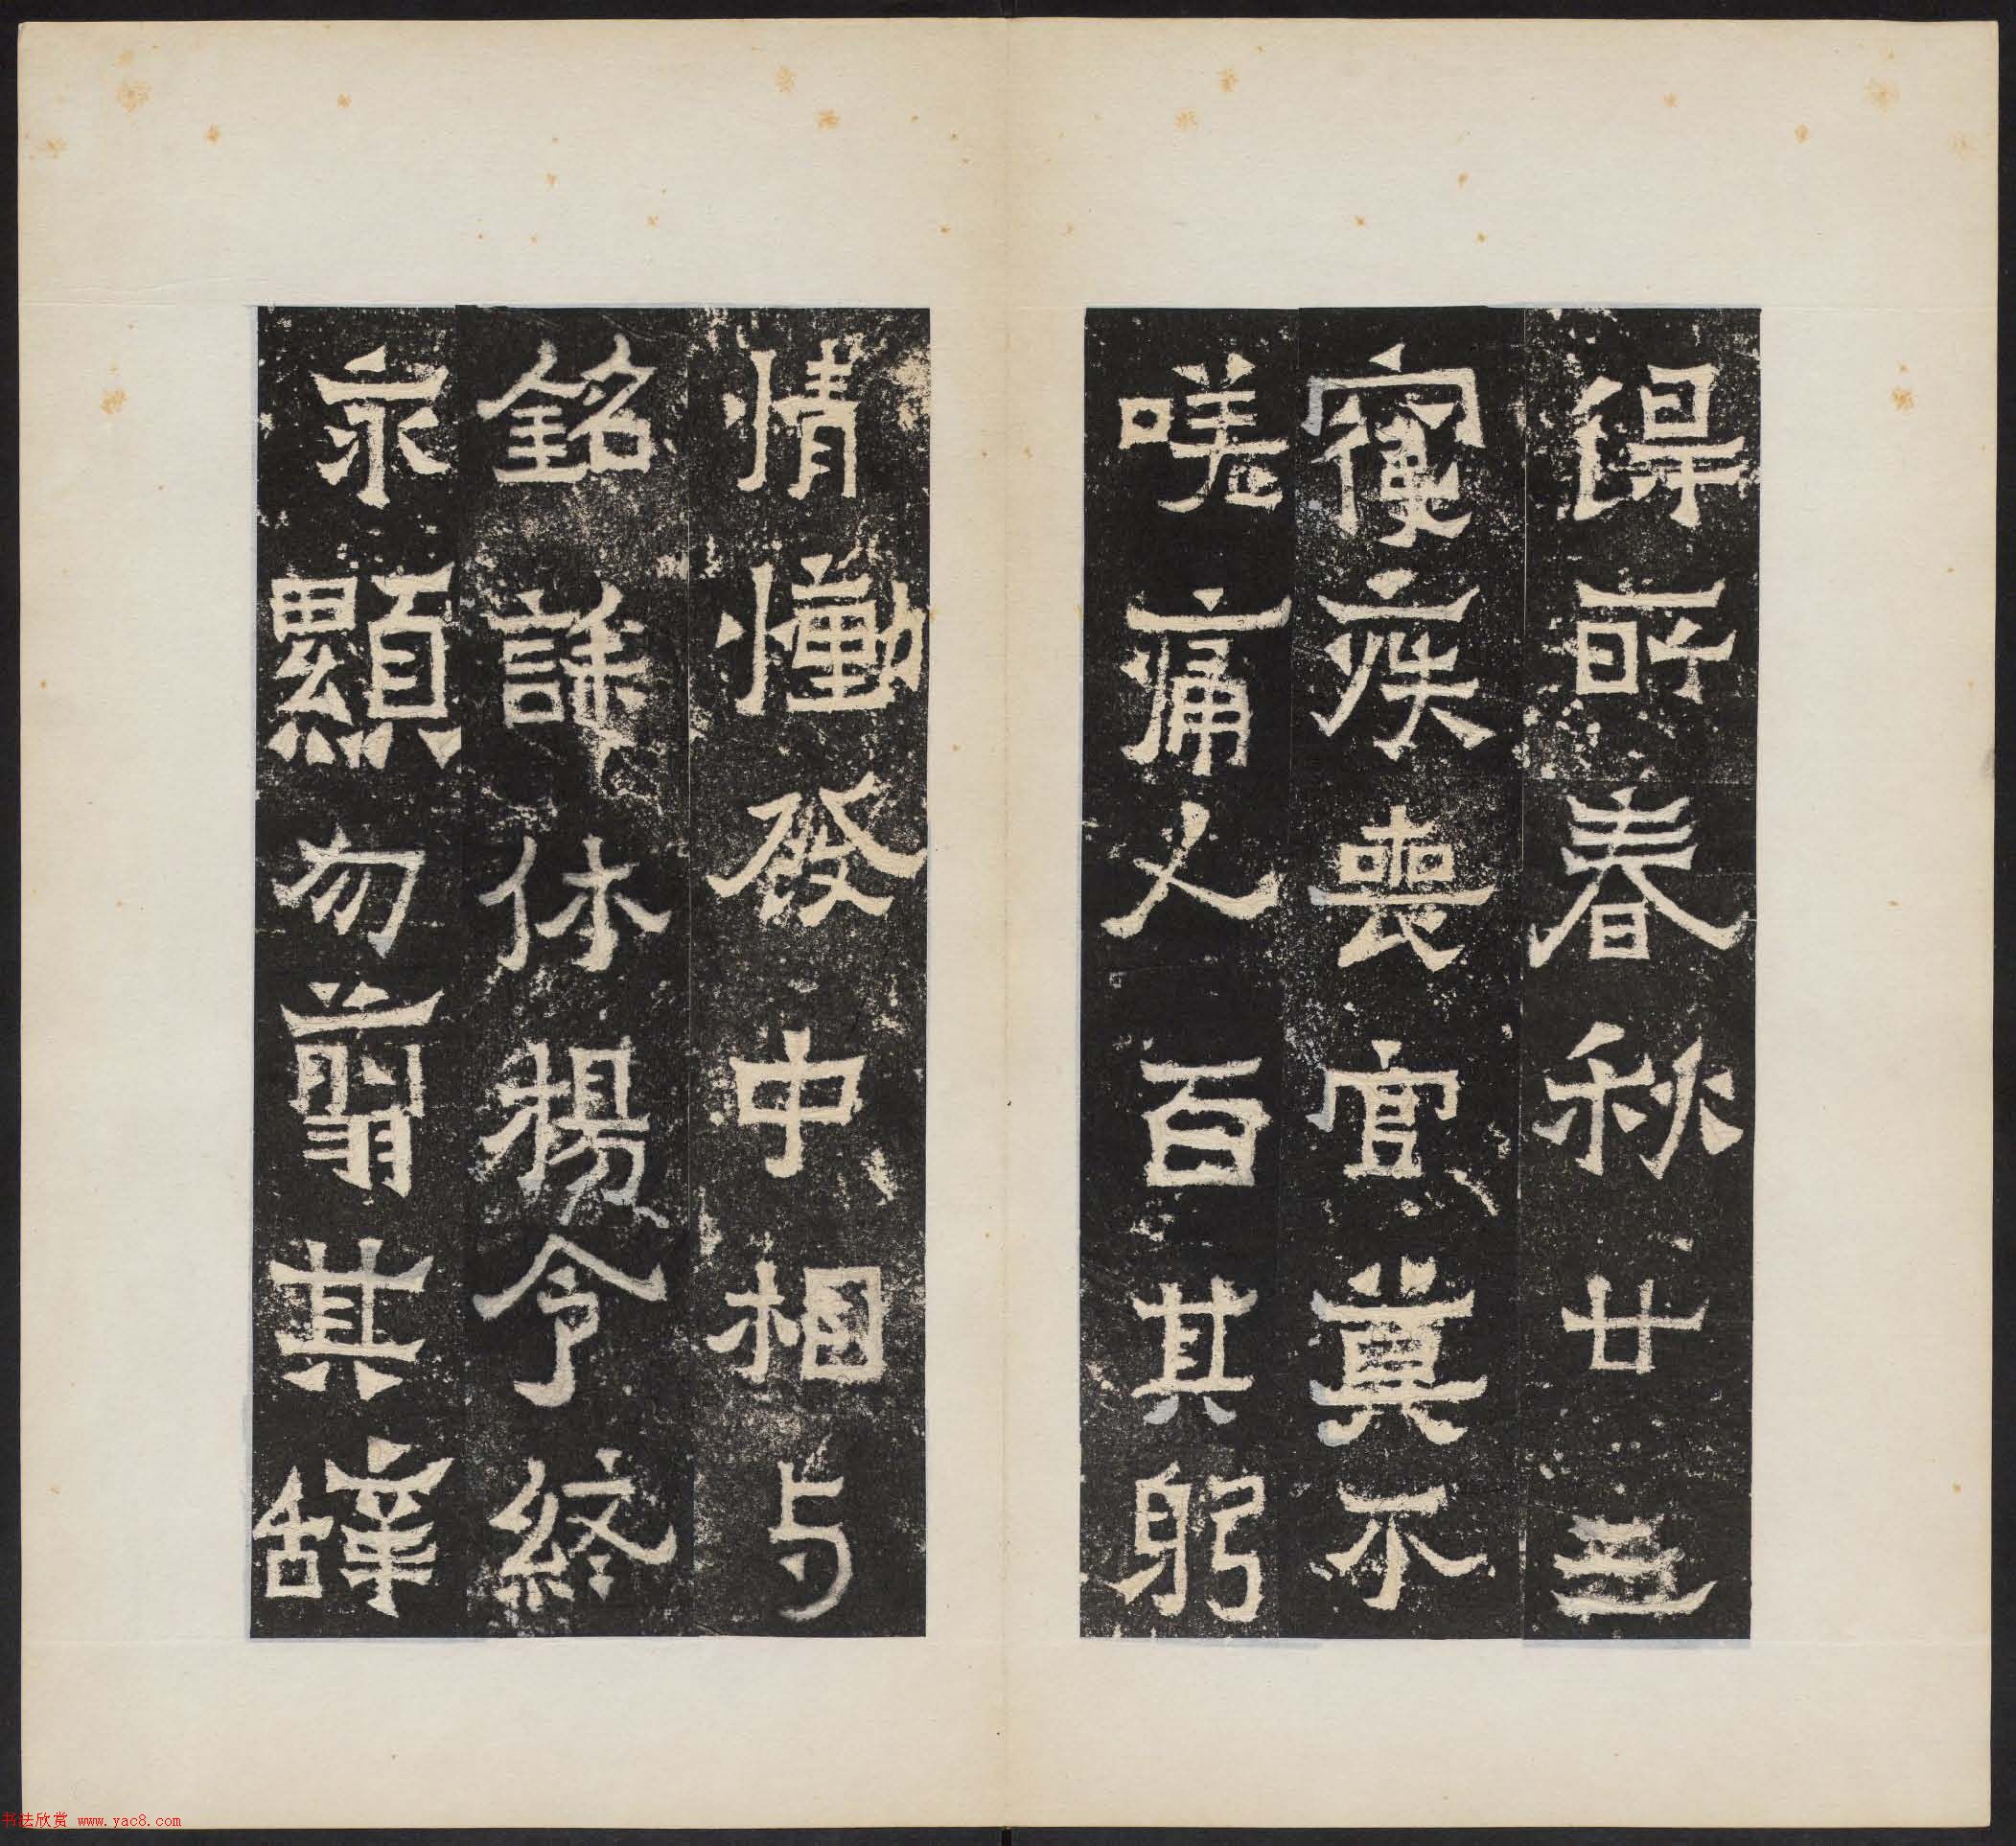 得所春秋廿三
寢疾喪官莫不
嗟痛人百其躬
情慟發中相与
銘誄休揚令終
永顯勿翦其辭
书法欣赏 www.yac8.com